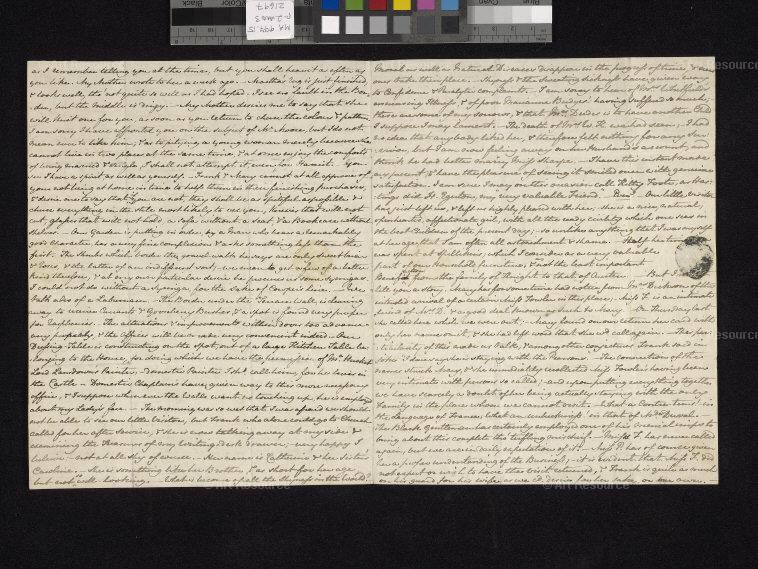 as I remember telling you at the time, but you shall hear it as often as
you like. My Mother wrote to her a week ago. Martha's rug is just finished,
& looks well, tho' not quite so well as I had hoped. I see no fault in the Bor-
-der, but the middle is dingy. My Mother desires me to say that she
will knit one for you, as soon as you return to chuse the colours & pattern.
I am sorry I have affronted you on the subject of Mr. Moore, but I do not
mean ever to like him; & as to pitying a young woman merely because she
cannot live in two places at the same time, & at once enjoy the comforts
of being married & single, I shall not attempt it, even for Harriot. You
see I have a spirit, as well as yourself. Frank & Mary cannot at all approve of
your not being at home in time to help them in their finishing purchases,
& desire me to say that, if you are not, they shall be as spiteful as possible &
chuse everything in the stile most likely to vex you, Knives that will not
cut, glasses that will not hold, a sofa without a seat, & a Bookcase without
shelves. Our Garden is putting in order, by a Man who bears a remarkably
good Character, has a very fine complexion & asks something less than the
first. The Shrubs which border the gravel walk he says are only sweetbriar
& roses, & the latter of an indifferent sort; we mean to get a few of a better
kind therefore, & at my own particular desire he procures us some Syringas.
I could not do without a Syringa, for the sake of Cowper's line. We
talk also of a Laburnam. The Border under the Terrace Wall, is clearing
away to receive Currants & Gooseberry Bushes, & a spot is found very proper
for Raspberries. The alterations & improvements within doors too advance
very properly, & the Offices will be made very convenient indeed. Our
Dressing-Table is constructing on the spot, out of a large Kitchen Table be-
-longing to the House, for doing which we have the permission of Mr. Husket
Lord Lansdown's Painter, domestic Painter I shd. call him, for he lives in
the Castle. Domestic Chaplains have given way to this more necessary
office, & I suppose whenever the Walls want no touching up, he is employed
about my Lady's face. The morning was so wet that I was afraid we should
not be able to see our little Visitor, but Frank who alone could go to Church
called for her after Service, & she is now talking away at my side &
examining the Treasures of my Writing-desk drawer; very happy I
beleive; not at all shy of course. Her name is Catherine & her Sister's
Caroline. She is something like her Brother, & as short for her age,
but not so well-looking. What is become of all the Shyness in the World?
Moral as well as Natural Diseases disappear in the progress of time, & new
ones take their place. Shyness & the Sweating Sickness have given way
to Confidence & Paralytic complaints. I am sorry to hear of Mrs. Whitfield's
encreasing Illness, & of poor Marianne Bridges' having suffered so much;
these are some of my sorrows, & that Mrs. Deedes is to have another Child
I suppose I may lament. The death of Mrs. W. K. we had seen; I had
no idea that anybody liked her, & therefore felt nothing for any Sur-
vivor, but I am now feeling away on her Husband's account, and
think he had better marry Miss Sharpe. I have this instant made
my present, & have the pleasure of seeing it smiled over with genuine
satisfaction. I am sure I may on this occasion call Kitty Foote, as Has-
tings did H. Egerton, my "very valuable Friend." Eveng. Our little visitor
has just left us, & left us highly pleased with her; she is a nice, natural,
openhearted, affectionate girl, with all the ready civility which one sees in
the best Children of the present day; so unlike anything that I was myself
at her age, that I am often all astonishment & shame. Half her time here
was spent at Spillikins; which I consider as a very valuable
part of our Household furniture, & as not the least important
Benefaction from the family of Knight to that of Austen. But I must
tell you a story. Mary has for some time had notice from Mrs. Dickson of the
intended arrival of a certain Miss Fowler in this place; Miss F. is an intimate
friend of Mrs. D. & a good deal known as such to Mary. On Thursday last
she called here while we were out; Mary found on our return her card with
only her name on it, & she had left word that she wd. call again. The par-
-ticularity of this made us talk, & among other conjectures Frank said in
joke "I dare say she is staying with the Pearsons." The connection of the
names struck Mary, & she immediately recollected Miss Fowler's having been
very intimate with persons so called; and upon putting everything together
we have scarcely a doubt of her being actually staying with the only
Family in the place whom we cannot visit. What a Contretems! in
the Language of France; What an unluckiness! in that of Mde. Duval:
The Black Gentleman has certainly employed one of his menial imps to
bring about this complete tho' trifling mischief. Miss F. has never called
again, but we are in daily expectation of it. Miss P. has of course given
her a proper understanding of the Business; it is evident that Miss F. did
not expect or wish to have the visit returned, & Frank is quite as much
on his guard for his wife, as we cd. desire for her sake, or our own.